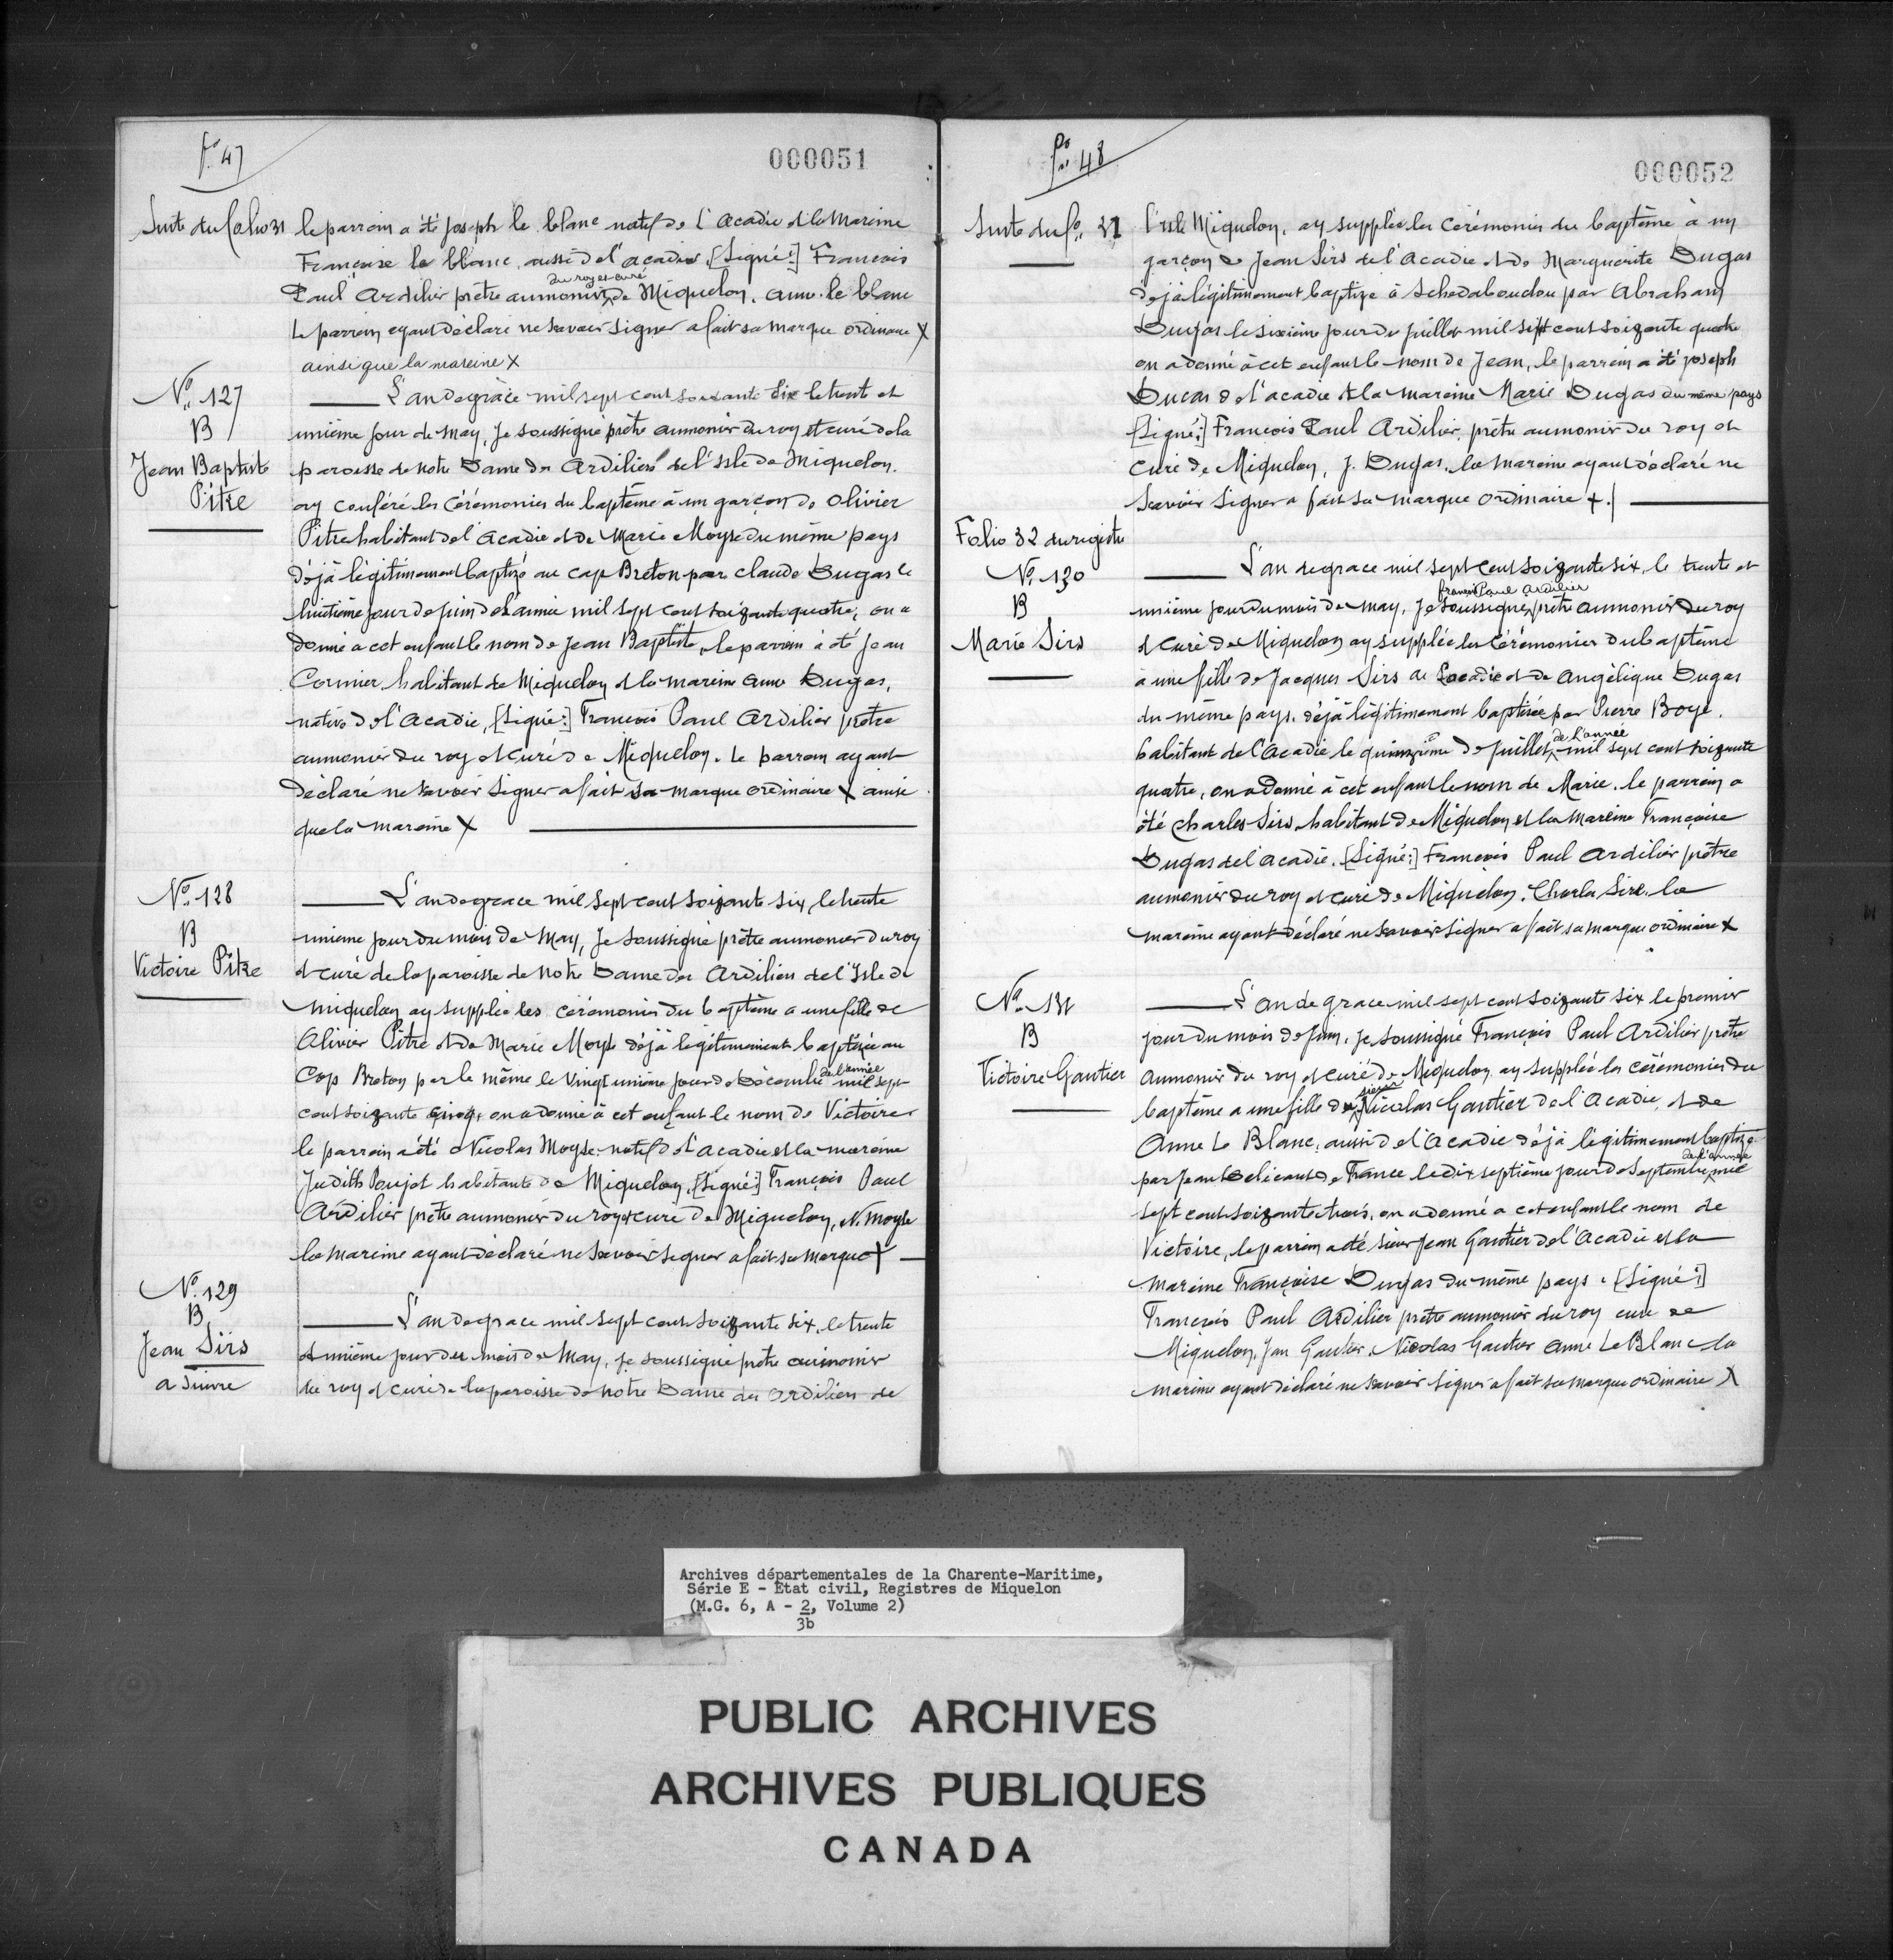 fo 47
000051
Suite du folio 31
le parrain a été joseph le blanc natif de l'acadie et la mareine
Françoise le blanc aussi de l'acadie. [Signé:] Francois
du roy et curé
Paul ardilier prêtre aumonier de Miquelon. anne le blanc
Le parrein ayant déclaré ne savoir signer a fait sa marque ordinaire X
ainsi que la mareine X
No. 127
B
Jean Baptiste
Pitre
L'an de grâce mil sept cent soixante six le trente et
unième jour de may, Je soussigné prêtre aumonier du roy et curé de la
paroisse de notre Dame des Ardiliers de l'isle de Miquelon.
ay conféré les cérémonies du baptême à un garçon de Olivier
Pitre habitant de l'acadie et de Marie Moyse du même pays
déjà légitimement baptizé au cap Breton par claude Dugas le
huitième jour de juin de l'année mil sept cent soizante quatre, on a
donné a cet enfant le nom de Jean Baptiste, le parrein à été Jean
Cormier habitant de Miquelon et la mareine anne Dugas,
native de l'Acadie, [Signé:] Francois Paul Ardilier prêtre
aumonier du roy et Curé de Miquelon. Le parrain ayant
déclaré ne savoir signer a fait sa marque ordinaire X ainsi
que la mareine X
No. 128
B
Victoire Pitre
L'an de grace mil sept cent soizante six, le trente
unieme jour du mois de May, Je soussigné prêtre aumonier du roy
et curé de la paroisse de notre Dame des Ardiliers de l'Isle de
Miquelon ay supplée les cérémonies du baptême a une fille de
Olivier Pitre et de Marie Moyse déjà légitimement baptisée au
de l'année
Cap Breton par le même le vingt unième jour de Décembre mil sept
cent soizante cinq, on a donné à cet enfant le nom de Victoire
le parrain a été Nicolas Moyse natif de l'acadie et la mareine
Judith Poujet habitante de Miquelon, [Signé:] François Paul
Ardilier prêtre aumonier du roy et curé de Miquelon, N. Moyse
la mareine ayant déclaré ne savoir signer a fait sa marque X
No. 129
B
Jean Sirs
a suivre
L'an de grace mil sept cent soizante six, le trente
et unième jour du mois de May, je soussigné prêtre aumonier
du roy et curé de la paroisse de notre Dame des Ardiliers de
fo 48
000052
Suite du fo. 31
l'isle Miquelon, ay supplée les cérémonies du baptême à un
garçon de Jean Sirs de l'Acadie et de Marguerite Dugas
déjà légitimement baptize à Schedaboudou par Abraham
Dugas le sixième jour de juillet mil sept cent soizante quatre
on a donné à cet enfant le nom de Jean, le parrein a été joseph
Ducas de l'acadie et la mareine Marie Dugas du même pays
[Signé:] François Paul Ardilier, prêtre aumonier du roy et
Curé de Miquelon, J. Dugas. la mareine ayant déclaré ne
savoir signer a fait sa marque ordinaire +.
Folio 32 du registre
No. 130
B
Marie Sirs
L'an de grace mil sept cent soizante six, le trente et
françois Paul Ardilier
unième jour du mois de may, Je soussigné prêtre aumonier du roy
et curé de Miquelon ay supplée les cérémonies du baptême
à une fille de Jacques Sirs de l'acadie et de Angélique Dugas
du même pays. déjà légitimement baptisée par Pierre Boyé.
de l'année
habitant de l'Acadie le quinzième de juillet mil sept cent soizante
quatre, on a donné à cet enfant le nom de Marie. le parrein a
été Charles Sirs, habitant de Miquelon et la mareine Françoise
Dugas de l'acadie. [Signé:] Francois Paul Ardilier prêtre
aumonier du roy et curé de Miquelon. Charles Sirs. la
mareine ayant déclaré ne savoir signer a fait sa marque ordinaire X
No. 131
B
Victoire Gautier
L'an de grace mil sept cent soizante six le premier
jour du mois de juin, je soussigné François Paul Ardilier prêtre
Aumonier du roy et curé de Miquelon, ay supplée les cérémonies du
sieur
baptême a une fille de Nicolas Gautier de l'Acadie, et de
Anne Le Blanc, aussi de l'Acadie déjà légitimement baptize
de l'année
par Jean Delicant de France le dix septième jour de Septembre mil
sept cent soizante trois, on a donné a cet enfant le nom de
Victoire, le parrein a été sieur Jean Gautier de l'Acadie et la
mareine Françoise Dugas du même pays. [Signé:]
François Paul Ardilier prêtre aumonier du roy curé de
Miquelon, Jean Gautier, Nicolas Gautier Anne Le Blanc la
mareine ayant déclaré ne savoir signer a fait sa marque ordinaire X
Archives départementales de la Charente-Maritime,
Série E - Etat civil, Registres de Miquelon
(M.G. 6, A - 2, Volume 2)
3b
PUBLIC ARCHIVES
ARCHIVES PUBLIQUES
CANADA